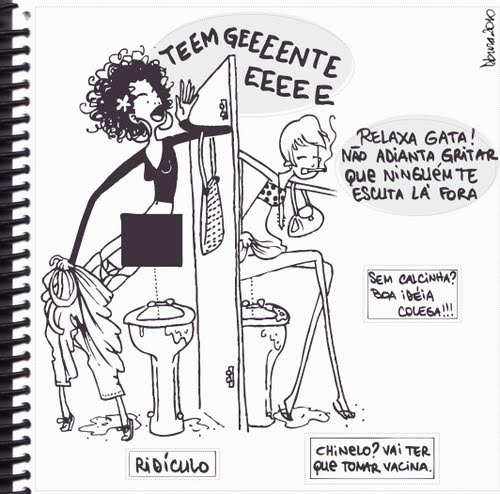 TEEM GEEEENTE
EEEEE
_RELAXA GATA!
NÃO ADIANTA GRITAR
QUE NINGUÉM TE
ESCUTA LÁ FORA
SEM CALCINHA?
BOA IDÉIA
COLEGA!!!
RIDÍCULO
CHINELO? VAI TER
QUE TOMAR VACINA.